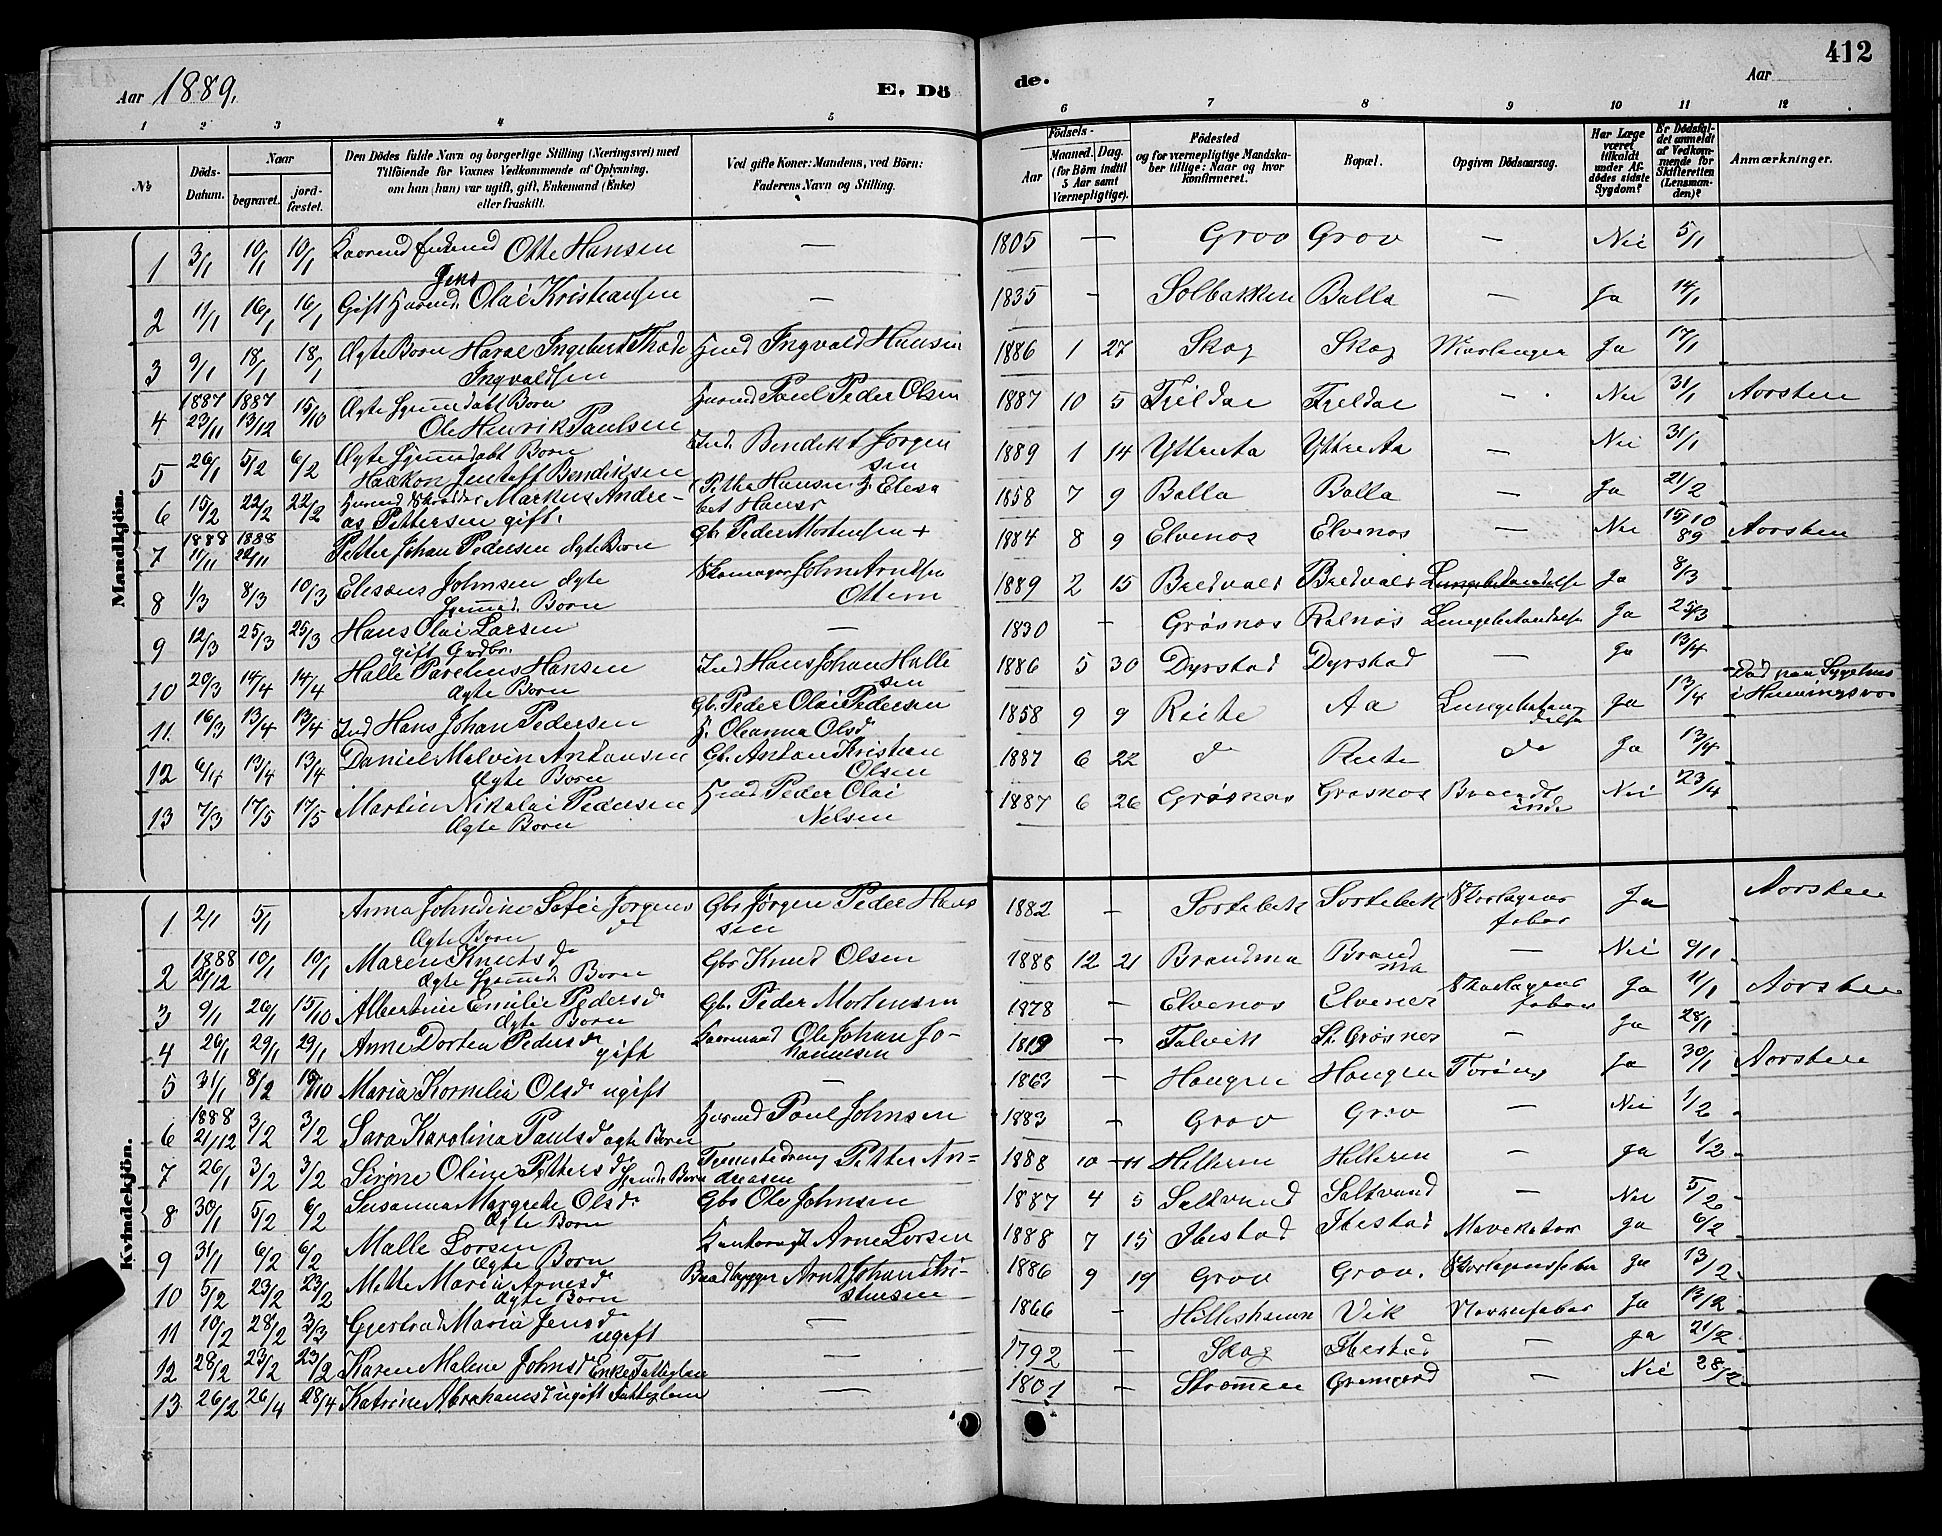 Aar 1889.
E. Dö
de.
Aar
412
1 2 3 4 5 6 7 8 9 10 11 12
№
Döds-Datum.
Naar
begravet.
jordfæstet.
Den Dödes fulde Navn og borgerlige Stilling (Næringsvei) med
Tilföiende for Voxnes Vedkommende af Oplysning,
om han (hun) var ugift, gift, Enkemand (Enke)
eller fraskilt.
Ved gifte Koner: Mandens, ved Börn:
Faderens Navn og Stilling.
Födsels-
Aar
Maaned. Dag.
(for Börn indtil
5 Aar samt
Værnepligtige).
Födested
og for værnepligtige Mandska-
ber tillige: Naar og hvor
konfirmeret.
Bopæl.
Opgiven Dödsaarsag.
Har Læge
været
tilkaldt
under Af-
dödes sidste
Sygdom?
Er Dödsfal-
det anmeldt
af Vedkom-
mende for
Skifteretten
(Lensman-
den)?
Anmærkninger.
Mandkjön.
1 3/1 10/1 10/1 Otte Hansen — 1805 — Grov Grov — Nei 5/1
2 11/1 16/1 16/1 Gift Jens Olai Kristiansen — 1835 - Solbakken Balla — Ja 14/1
3 9/1 18/1 18/1 Ægte Barn Ingebert
Ingvaldsen Ingvald Hansen 1886 1 27 Skog Skog Ja 17/1
4 1887 23/11 1887 13/12 15/10 Ægte Barn
Ole Henrik Paulsen Paul Peder Olsen 1887 10 5 Fjeldal Fjeldal — Nei 31/1 Aarsten
5 26/1 5/2 6/2 Ægte Barn
Haakon Gustaff Bendiksen Ind. Bendikt Jørgen
sen 1889 1 14 Yttre Aa Yttre Aa — Nei 31/1
6 15/2 22/2 22/2 Markus Andre-
as Pettersen gift. Hansen
1858 7 9 Balla Balla — Ja 21/2
7 1888 11/11 1888 Petter Johan Pedersen Ægte Barn Gb. Peder Mortensen + 1884 8 9 Elvenes Elvenes — Nei 15/10 89 Aarsten
8 1/3 8/3 10/3 Johnsen Ægte
Barn Skomager John Arntsen
1889 2 15 Bredvald Bredvald Lungebetændelse Ja 8/3
9 12/3 25/3 25/3 Hans Olai Larsen
gift — 1830 - Grøsnes Lungebetændelse Ja 25/3
10 20/3 14/4 14/4 Halle Parelius Hansen
Ægte Barn Ind Hans Johan Halle
sen 1886 5 30 Dyrstad Dyrstad — Ja 13/4
11. 16/3 13/4 13/4 Ind Hans Johan Pedersen Gb. Peder Olai Pedersen
Oleanna Olsd 1858 9 9 Reite Aa Lungebetæn
delse Ja 13/4 Død paa Sygehus
i Henningsvær
12 6/4 13/4 13/4 Daniel Melvin Antonsen
Ægte Barn Gb. Anton Kristian
Olsen 1887 6 22 do Reite do Ja 13/4
13 7/3 17/5 17/5 Martin Nikolai Pedersen
Ægte Barn Peder Olai
Nelsen 1887 6 26 Grøsnes Grøsnes Nei 23/4
Kvindekjön.
1 2/1 5/1 Anna Johndine Sofie Jørgens
dr Ægte Barn Gbr Jørgen Peder Han
sen 1882 - Sortebek Sortebek Skarlagens
feber Ja Aarsten
2 1888 21/12 10/1 10/1 Maren Knutsdr
Ægte Barn Gbr Knud Olsen 1888 12 21 Brandma Brand
ma — Nei 9/1
3 9/1 26/1 15/10 Albertine Emilie Pedersdr
Ægte Barn Gb. Peder Mortensen 1878 - Elvenes Elvenes Skarlagens
feber Ja 11/1 Aarsten
4 26/1 29/1 29/1 Anne Dortea Pedersdr
gift Ole Johan Jo-
hannesen 1819 - Talvik St. Grøsnes — Ja 28/1
5 31/1 8/2 15/10 Maria Kornelia Olsdr ugift — 1863 - Haugen Haugen Tæring Ja 30/1 Aarsten
6 1888 21/12 3/2 3/2 Sara Karolina Paulsdr ægte Barn Paul Johnsen 1883 - Grov Grov — Nei 1/2
7 26/1 3/2 3/2 Sirine Oline Pettersdr Barn Petter An-
dreasen 1888 10 11 Helleren Helleren — Ja 1/2
8 30/1 5/2 6/2 Susanna Margrete Olsdr
Ægte Barn Gbr Ole Johnsen 1887 4 5 Saltvand Saltvand — Nei 5/2
9 31/1 6/2 6/2 Malle Larsen
Ægte Barn Arne Larsen 1888 7 15 Ibestad Ibestad Mavekatar Ja 6/2
10 5/2 23/2 23/2 Mette Maria Arnesdr
Ægte Barn Baadbygger Arnt Johan Kri-
stensen 1886 9 19 Grov Grov. Skarlagensfeber Ja 13/2
11 10/2 28/2 3/3 Gjertrud Maria Jensdr
ugift — 1866 - Hilleshamn Vik Nervefeber Ja 13/2
12 28/2 23/2 23/2 Karen Malene Johnsdr Enke Fattiglem — 1792 - Skog Ibestad — Ja 21/2
13 26/2 26/4 28/4 Katrine Abrahamsdr ugift Fattiglem — 1801 - Strømmen — Nei 28/2